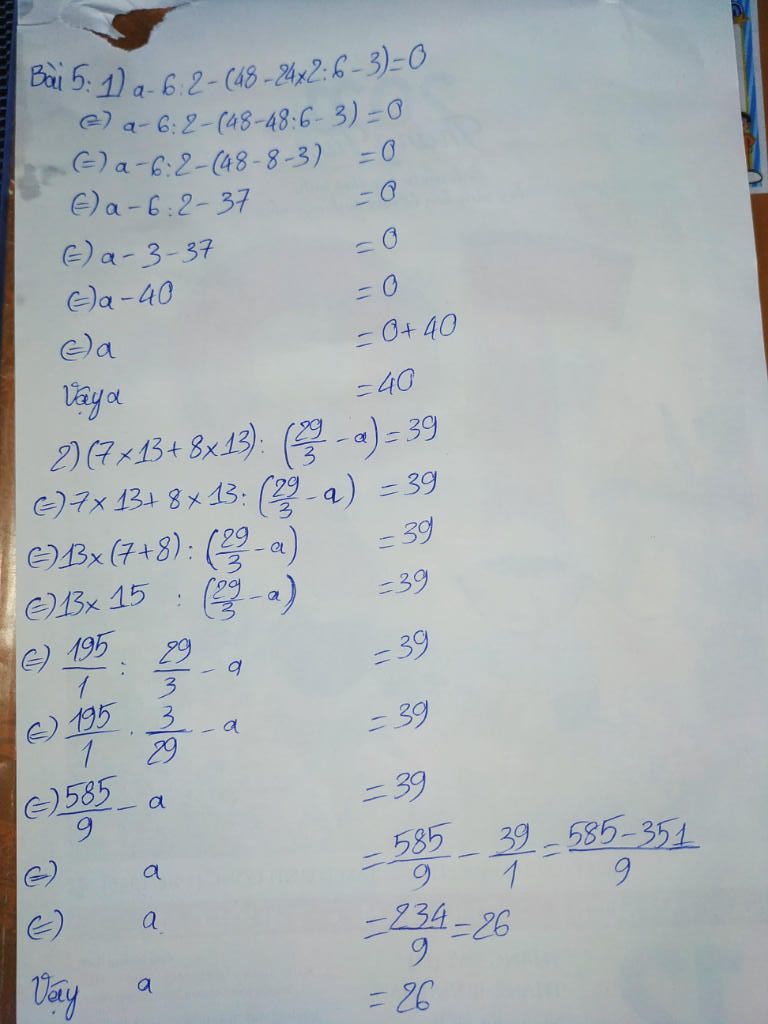 Bài 5: 1) a - 6 : 2 - (48 - 24 x 2 : 6 - 3) = 0
(=) a - 6 : 2 - (48 - 48 : 6 - 3) = 0
(=) a - 6 : 2 - (48 - 8 - 3) = 0
(=) a - 6 : 2 - 37 = 0
(=) a - 3 - 37 = 0
(=) a - 40 = 0
(=) a = 0 + 40
Vậy a = 40
2) (7 x 13 + 8 x 13) : (29/3 - a) = 39
(=) 7 x 13 + 8 x 13 : (29/3 - a) = 39
(=) 13 x (7 + 8) : (29/3 - a) = 39
(=) 13 x 15 : (29/3 - a) = 39
(=) 195/1 : 29/3 - a = 39
(=) 195/1 . 3/29 - a = 39
(=) 585/9 - a = 39
(=) a = 585/9 - 39/1 = 585-351/9
(=) a = 234/9 = 26
Vậy a = 26